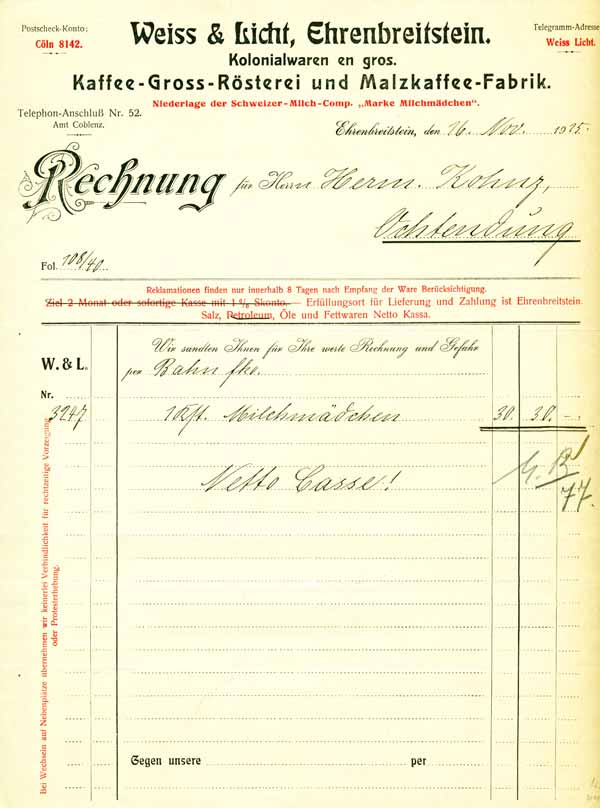 Postscheck-Konto:
Cöln 8142.
Weiss & Licht, Ehrenbreitstein.
Telegramm-Adresse
Weiss Licht.
Kolonialwaren en gros.
Kaffee-Gross-Rösterei und Malzkaffee-Fabrik.
Niederlage der Schweizer-Milch-Comp. „Marke Milchmädchen“.
Telephon-Anschluß Nr. 52.
Amt Coblenz.
Ehrenbreitstein, den 26. Nov. 1915.
Rechnung für Herrn Herm. Kohnz,
Ochtendung
Fol. 108/40
Reklamationen finden nur innerhalb 8 Tagen nach Empfang der Ware Berücksichtigung.
Ziel 2 Monat oder sofortige Kasse mit 1 % Skonto. — Erfüllungsort für Lieferung und Zahlung ist Ehrenbreitstein.
Salz, Petroleum, Öle und Fettwaren Netto Kassa.
W. & L.
Wir sandten Ihnen für Ihre werte Rechnung und Gefahr
per Bahn fko.
Nr.
3247 1 Kst. Milchmädchen 30. 30. –
Netto Casse!
77.
Bei Wechseln auf Nebenplätze übernehmen wir keinerlei Verbindlichkeit für rechtzeitige Vorzeigung
oder Protesterhebung.
Gegen unsere per